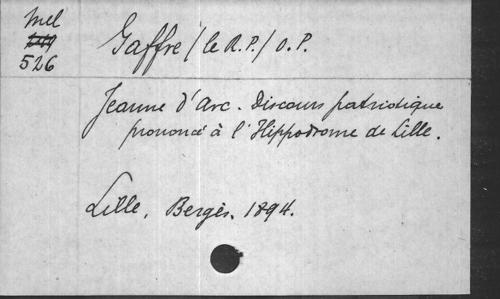 Mel
526
Gaffre / le R.P. / O.P.
Jeanne d'Arc. Discours patriotique
prononcé à l'Hippodrome de Lille.
Lille, Bergès, 1894.